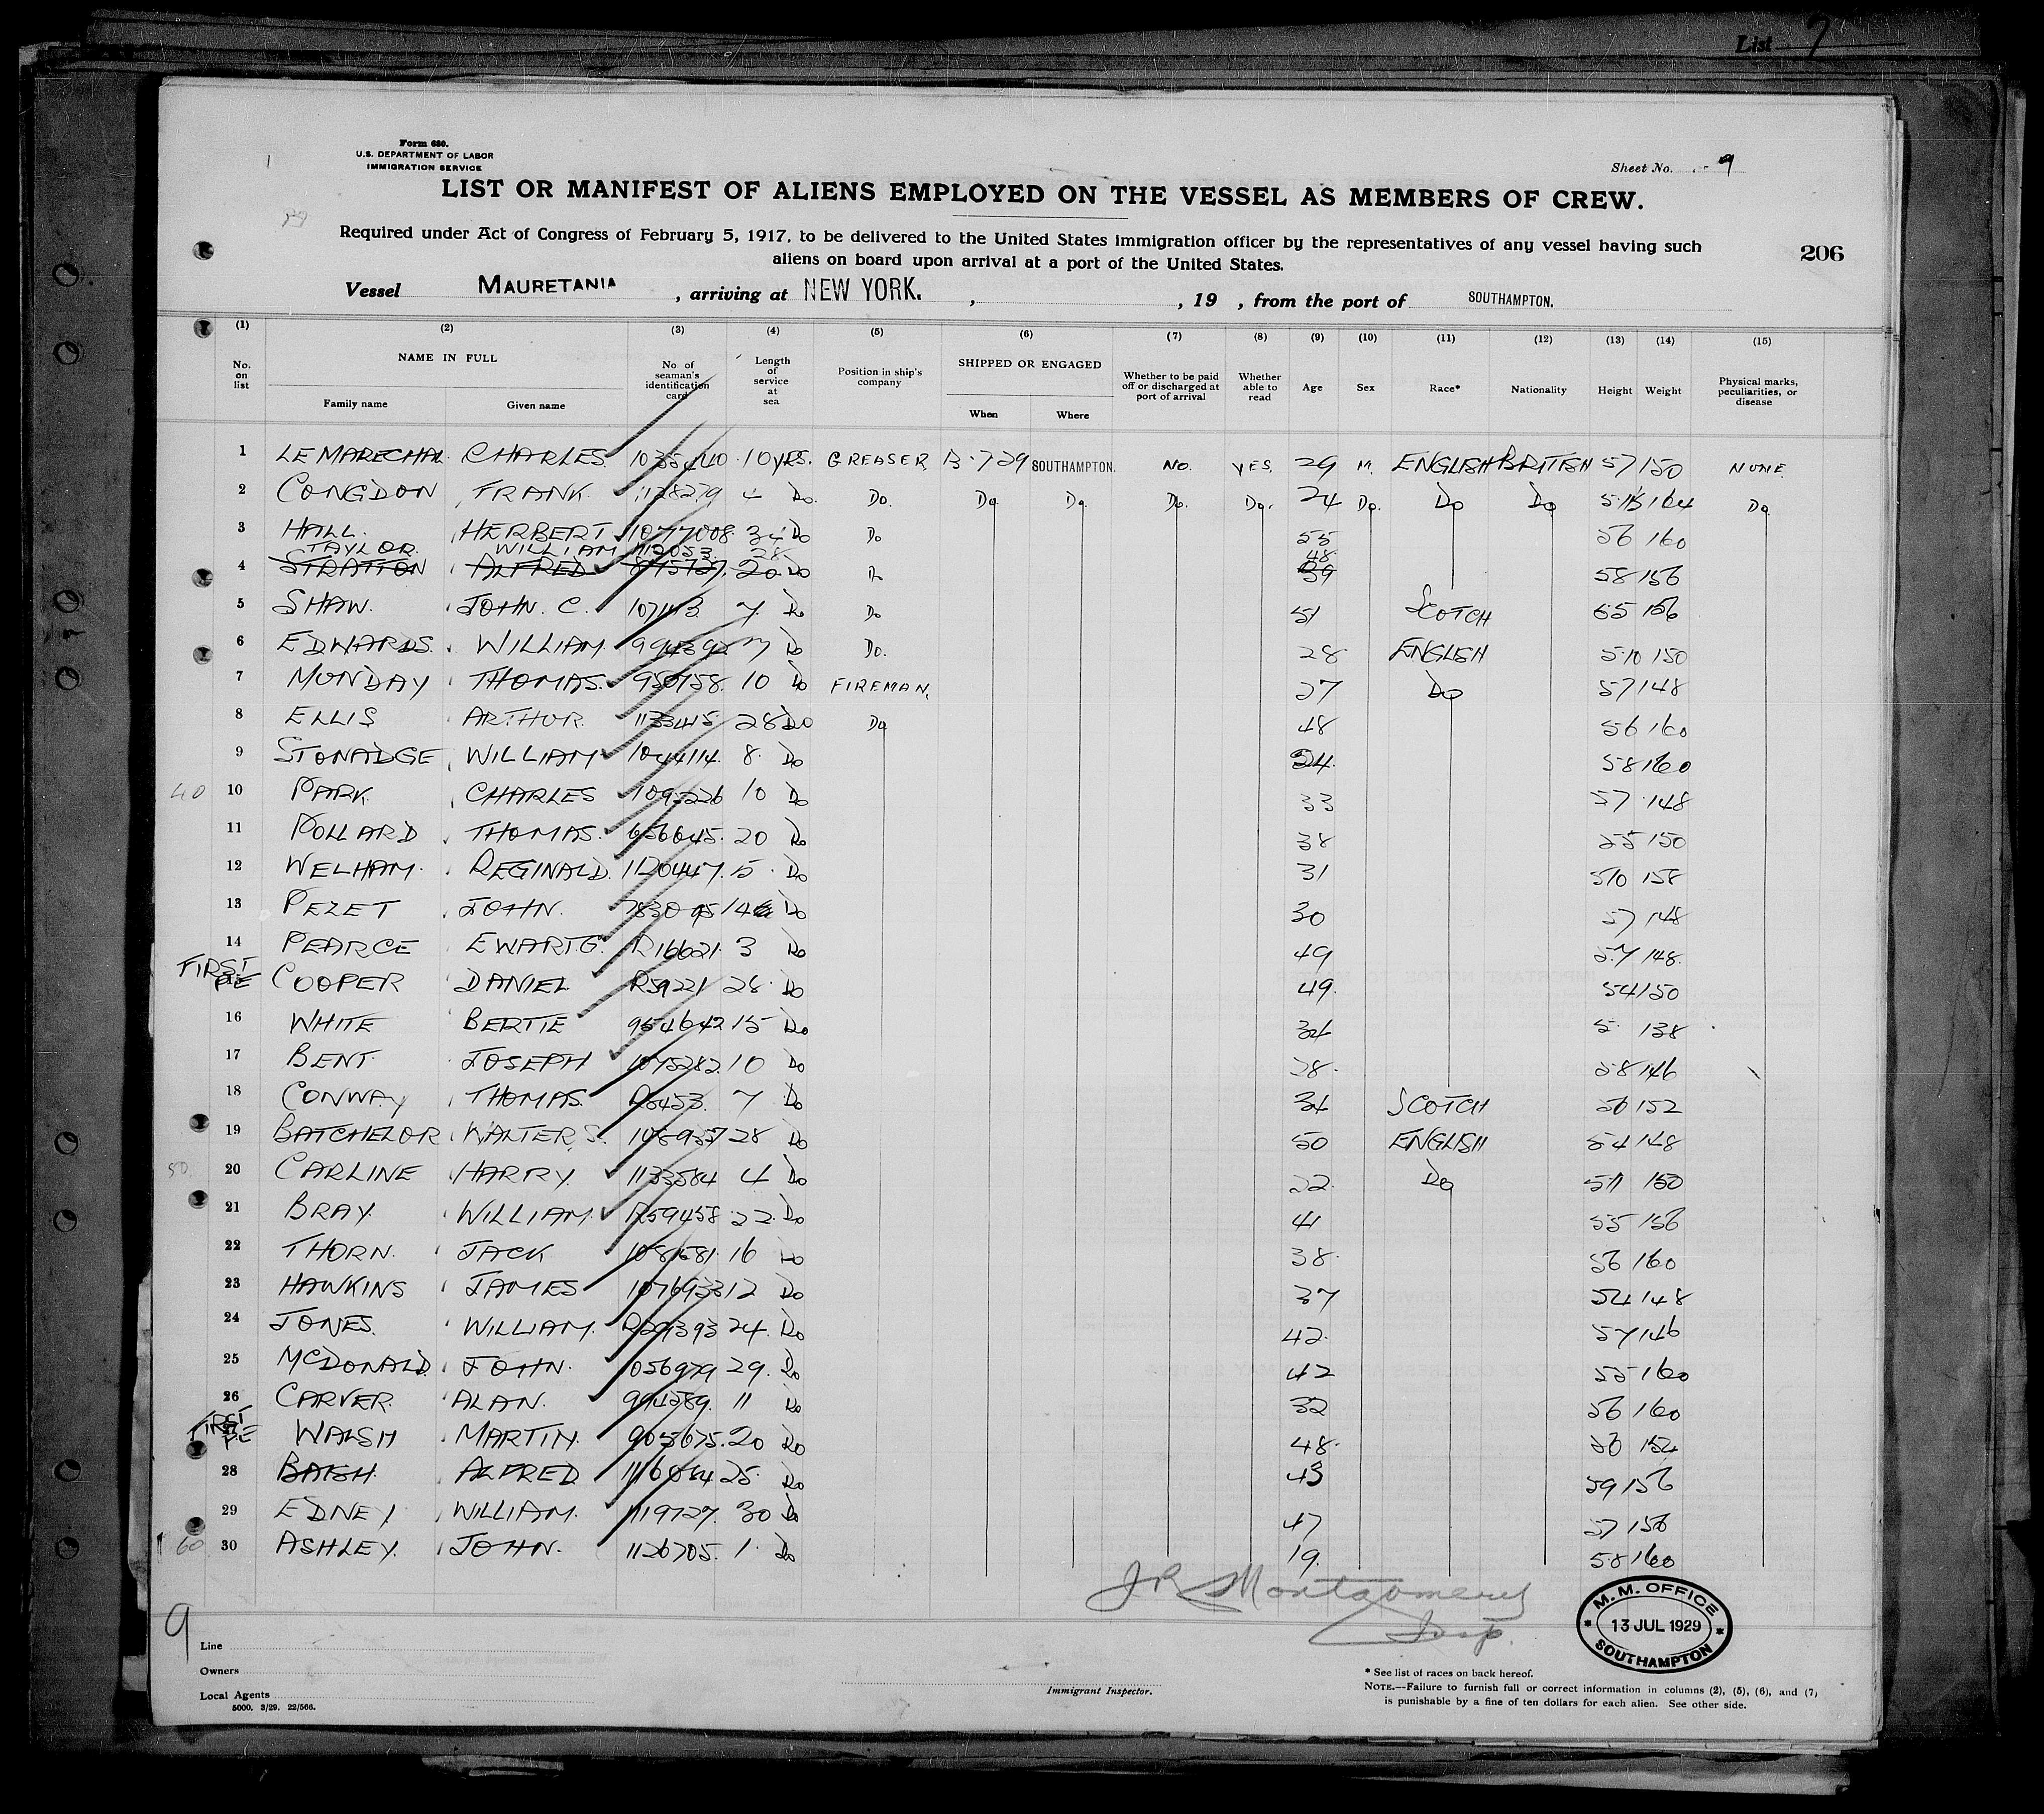 List 7
Form 680.
U.S. DEPARTMENT OF LABOR
IMMIGRATION SERVICE
Sheet No. 9
LIST OR MANIFEST OF ALIENS EMPLOYED ON THE VESSEL AS MEMBERS OF CREW.
Required under Act of Congress of February 5, 1917, to be delivered to the United States immigration officer by the representatives of any vessel having such
aliens on board upon arrival at a port of the United States.
206
Vessel MAURETANIA, arriving at NEW YORK. , , 19 , from the port of SOUTHAMPTON.
(1) (2) (3) (4) (5) (6) (7) (8) (9) (10) (11) (12) (13) (14) (15)
No. on list NAME IN FULL Family name Given name No of seaman's identification card Length of service at sea Position in ship's company SHIPPED OR ENGAGED When Where Whether to be paid off or discharged at port of arrival Whether able to read Age Sex Race* Nationality Height Weight Physical marks, peculiarities, or disease
1 LE MARECHAL CHARLES 1035440 10 YRS. GREASER 13.7.29 SOUTHAMPTON. NO. YES. 29 M. ENGLISH BRITISH 57 150 NONE
2 CONGDON FRANK 1128279 4 Do. Do. Do Do Do. Do. 24 Do. Do Do 164 Do
3 HALL. HERBERT 1077008 34 Do Do 55 56 160
TAYLOR. WILLIAM 1112053 28 48
4 STRATTON ALFRED 20 Do Do 39 58 156
5 SHAW. JOHN. C. 7 Do Do 51 SCOTCH 55 156
6 EDWARDS. WILLIAM. 994392 Do Do. 28 ENGLISH 5.10 150
7 MUNDAY THOMAS. 950758 10 Do FIREMAN. 27 Do 57 148
8 ELLIS ARTHUR. 1133415 28 Do Do 48 56 160
9 STONADGE WILLIAM 1044114. 8. Do 34. 58 160
40 10 PARK CHARLES 109 10 Do 33 57 148
11 POLLARD THOMAS. 656645. 20 Do 38 55 150
12 WELHAM. REGINALD. 1120447. 15 Do 31 510 158
13 PEZET JOHN. 14 Do 30 57 148
14 PEARCE EWART G. R16621 3 Do 49 57 148.
FIRST PE COOPER DANIEL R59221 28 Do 49. 54 150
16 WHITE BERTIE 954642 15 Do 34 5 138
17 BENT. JOSEPH 1075282. 10 Do 28. 58 146
18 CONWAY THOMAS. R8453. 7 Do 34 SCOTCH 56 152
19 BATCHELOR WALTER S. 108937 28 Do 50 ENGLISH 54 148
50. 20 CARLINE HARRY. 1133584 4 Do 22. Do 511 150
21 BRAY. WILLIAM. R59458 22. Do 41 55 156
22 THORN. JACK 108681 16 Do 38. 56 160
23 HAWKINS JAMES 1076933 12 Do 37 54 148
24 JONES. WILLIAM. R29393 24. Do 42. 57 146
25 MCDONALD. JOHN. 056979 29. Do 42 55 160
26 CARVER. ALAN. 994289. 11 Do 32 56 160
FIRST PE WALSH MARTIN. 905675. 20 Do 48. 56 154
28 BAISH. ALFRED 25. Do 43 59 156
29 EDNEY WILLIAM. 1119727. 30 Do 47 57 156
60 30 ASHLEY. JOHN. 1126705. 1. Do 19. 58 160
J R Montgomery
Insp.
M. M. OFFICE
13 JUL 1929
SOUTHAMPTON
9
Line
Owners
Local Agents
5000. 3/29. 22/566.
Immigrant Inspector.
* See list of races on back hereof.
NOTE.—Failure to furnish full or correct information in columns (2), (5), (6), and (7)
is punishable by a fine of ten dollars for each alien. See other side.